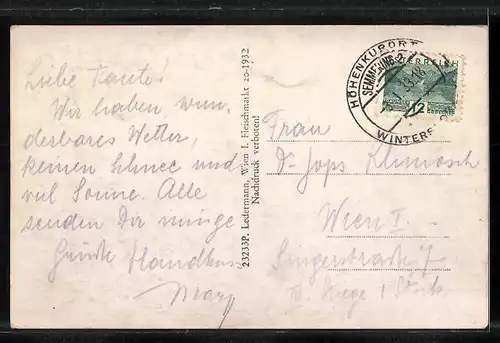 Liebe Tante!
Wir haben wun-
derbares Wetter,
keinen Schnee und
viel Sonne. Alle
senden Dir innige
Grüsse Handkuss
Mary
23233P. Ledermann, Wien I. Fleischmarkt 20-1932
Nachdruck verboten!
HÖHENKURORT
SEMMERING 2
WINTERSP
ÖSTERREICH
12
Frau
Wien I
Singerstrasse 7
III. Stiege 1 Stock